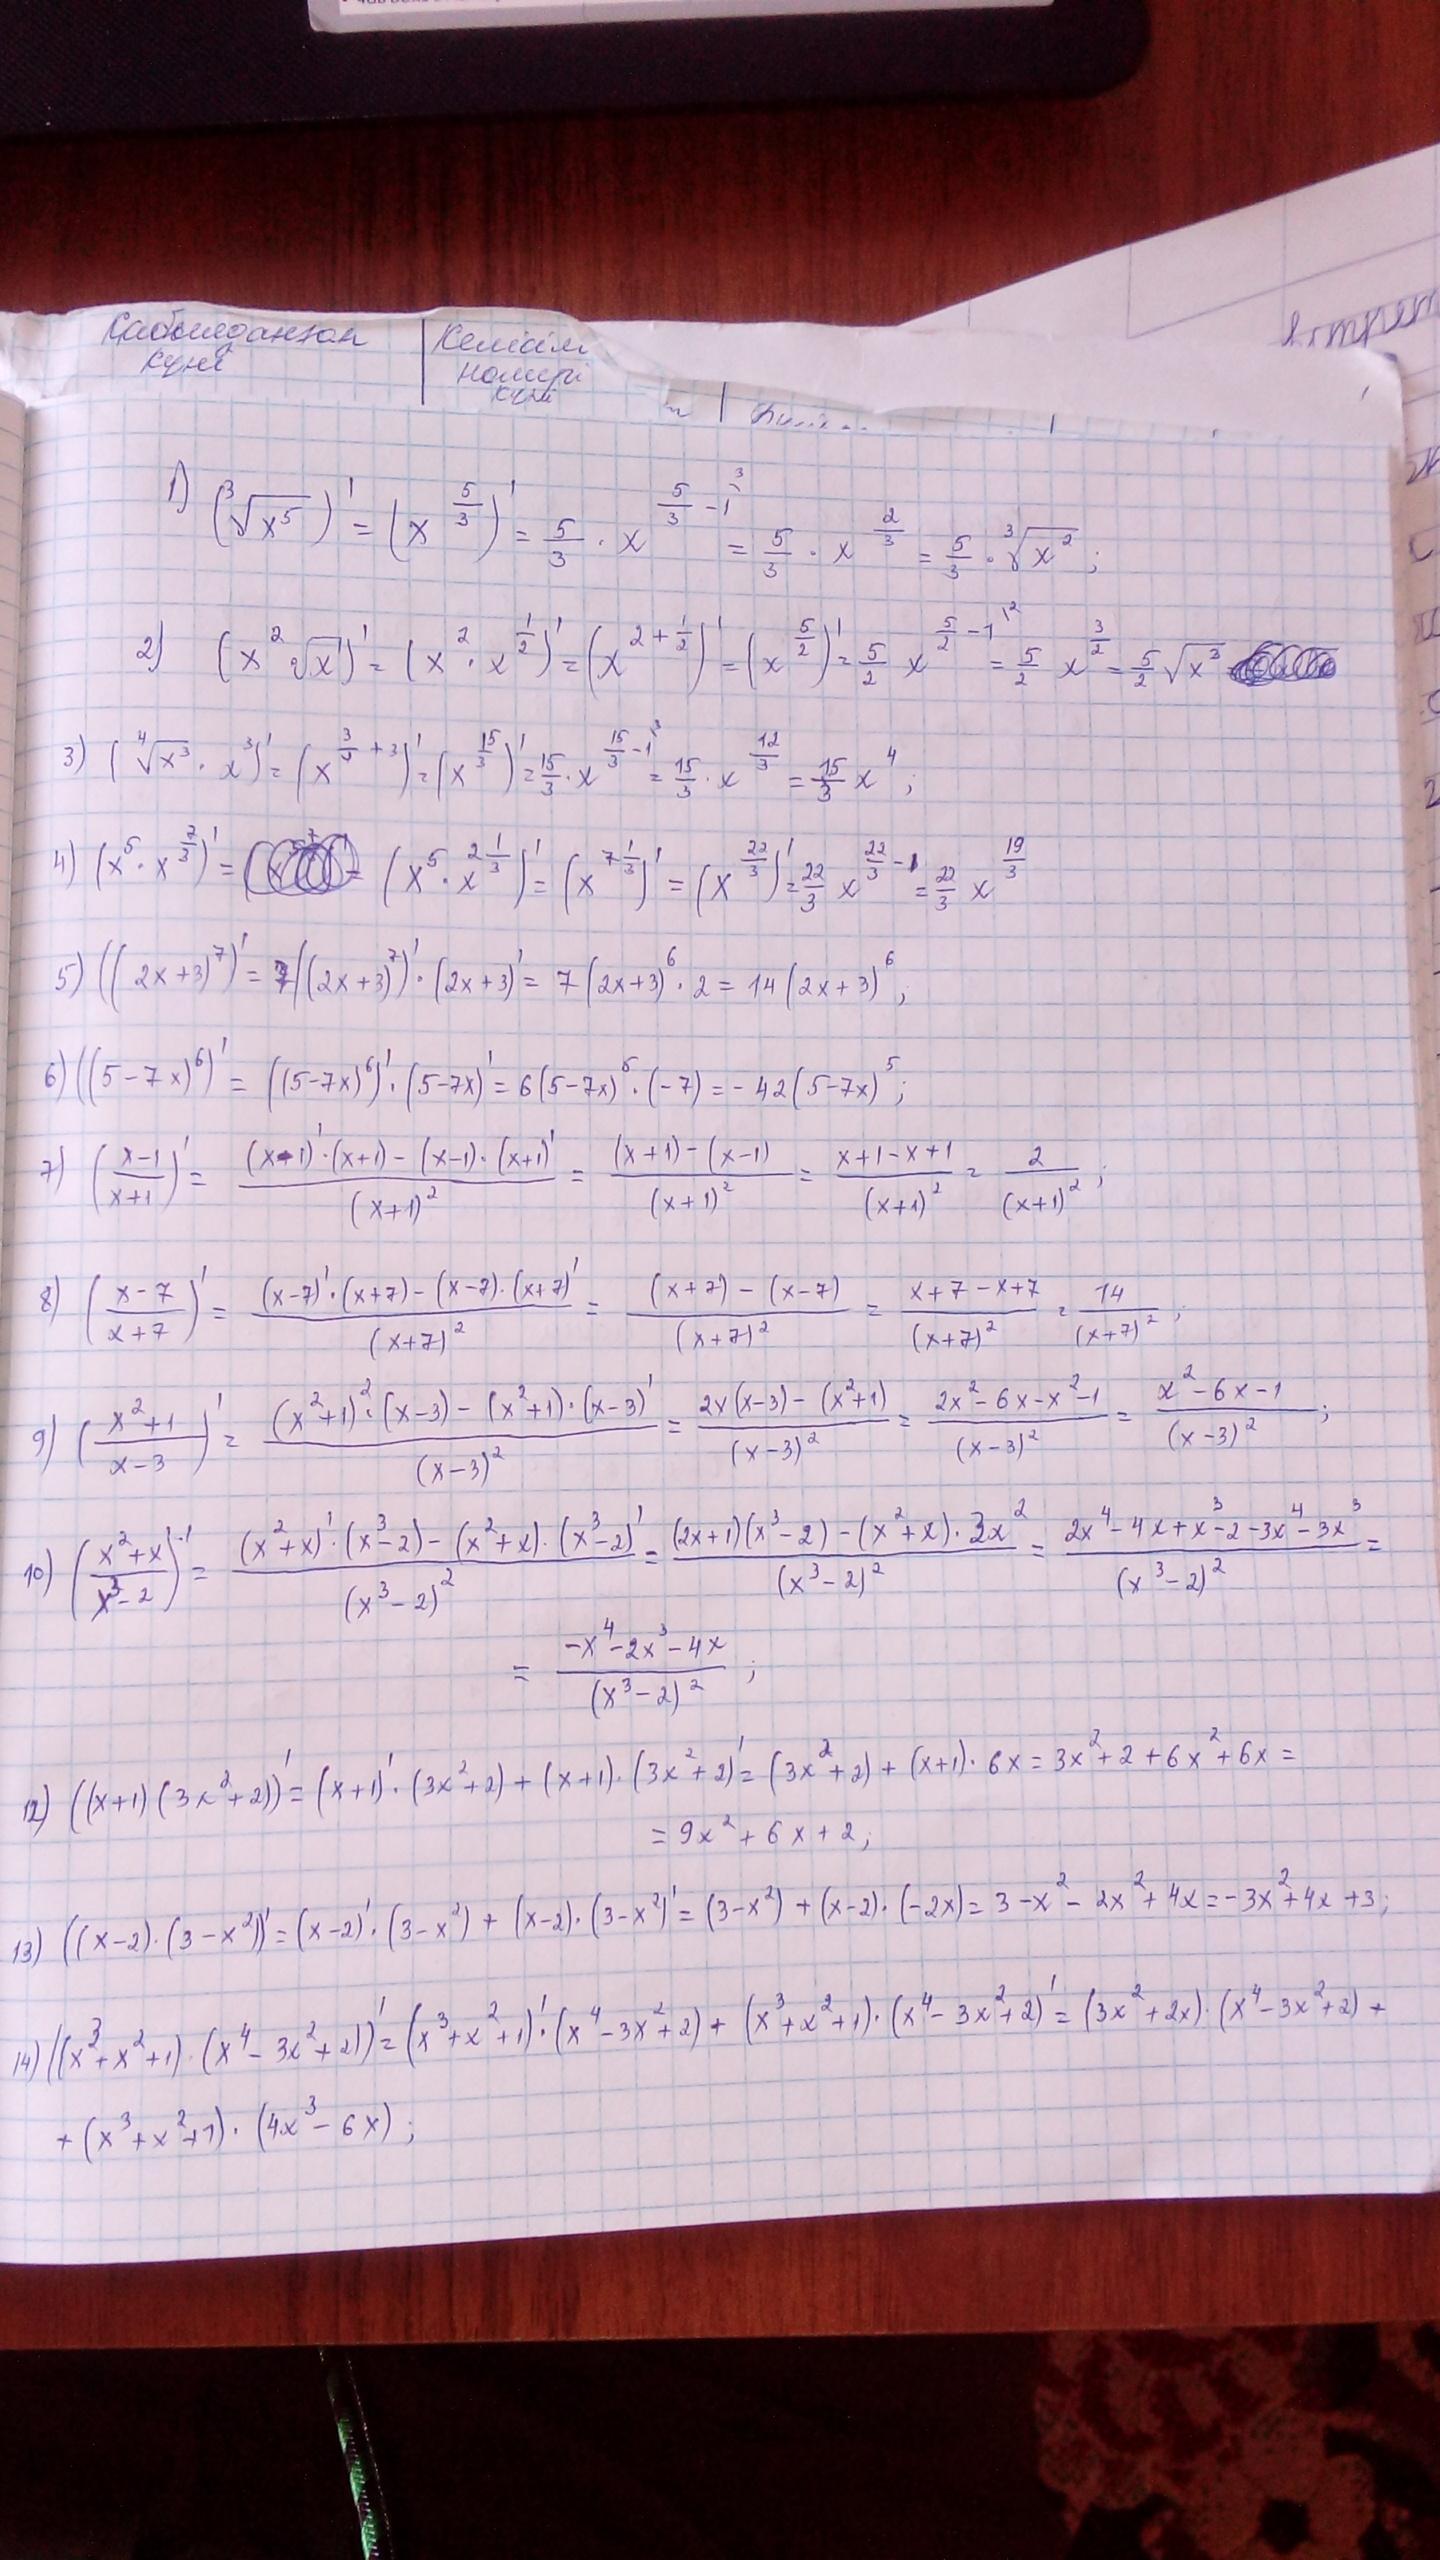 Қабылданған Кемшін
күні номері
күні
1) (∛x⁵)' = (x^(5/3))' = 5/3 · x^(5/3 - 1\³) = 5/3 · x^(2/3) = 5/3 · ∛x²;
2) (x² √x)' = (x² · x^(1/2))' = (x^(2 + 1/2))' = (x^(5/2))' = 5/2 x^(5/2 - 1\²) = 5/2 x^(3/2) = 5/2 √x³
3) (∜x³ · x³)' = (x^(3/4 + 3))' = (x^(15/3))' = 15/3 · x^(15/3 - 1\³) = 15/3 · x^(12/3) = 15/3 x⁴;
4) (x⁵ · x^(7/3))' = (x⁵ · x^(2 1/3))' = (x^(7 1/3))' = (x^(22/3))' = 22/3 x^(22/3 - 1) = 22/3 x^(19/3)
5) ((2x+3)⁷)' = 7((2x+3)⁷)' · (2x+3)' = 7(2x+3)⁶ · 2 = 14(2x+3)⁶;
6) ((5-7x)⁶)' = ((5-7x)⁶)' · (5-7x)' = 6(5-7x)⁵ · (-7) = -42(5-7x)⁵;
7) ((x-1)/(x+1))' = ((x-1)' · (x+1) - (x-1) · (x+1)')/(x+1)² = ((x+1) - (x-1))/(x+1)² = (x+1-x+1)/(x+1)² = 2/(x+1)²;
8) ((x-7)/(x+7))' = ((x-7)' · (x+7) - (x-7) · (x+7)')/(x+7)² = ((x+7) - (x-7))/(x+7)² = (x+7-x+7)/(x+7)² = 14/(x+7)²;
9) ((x²+1)/(x-3))' = ((x²+1)² · (x-3) - (x²+1) · (x-3)')/(x-3)² = (2x(x-3) - (x²+1))/(x-3)² = (2x²-6x-x²-1)/(x-3)² = (x²-6x-1)/(x-3)²;
10) ((x²+x)/(x³-2))' = ((x²+x)' · (x³-2) - (x²+x) · (x³-2)')/(x³-2)² = ((2x+1)(x³-2) - (x²+x) · 3x²)/(x³-2)² = (2x⁴-4x+x³-2-3x⁴-3x³)/(x³-2)² =
= (-x⁴-2x³-4x)/(x³-2)²;
12) ((x+1)(3x²+2))' = (x+1)' · (3x²+2) + (x+1) · (3x²+2)' = (3x²+2) + (x+1) · 6x = 3x²+2+6x²+6x =
= 9x²+6x+2;
13) ((x-2) · (3-x²))' = (x-2)' · (3-x²) + (x-2) · (3-x²)' = (3-x²) + (x-2) · (-2x) = 3-x²-2x²+4x = -3x²+4x+3;
14) ((x³+x²+1) · (x⁴-3x²+2))' = (x³+x²+1)' · (x⁴-3x²+2) + (x³+x²+1) · (x⁴-3x²+2)' = (3x²+2x) · (x⁴-3x²+2) +
+ (x³+x²+1) · (4x³-6x);